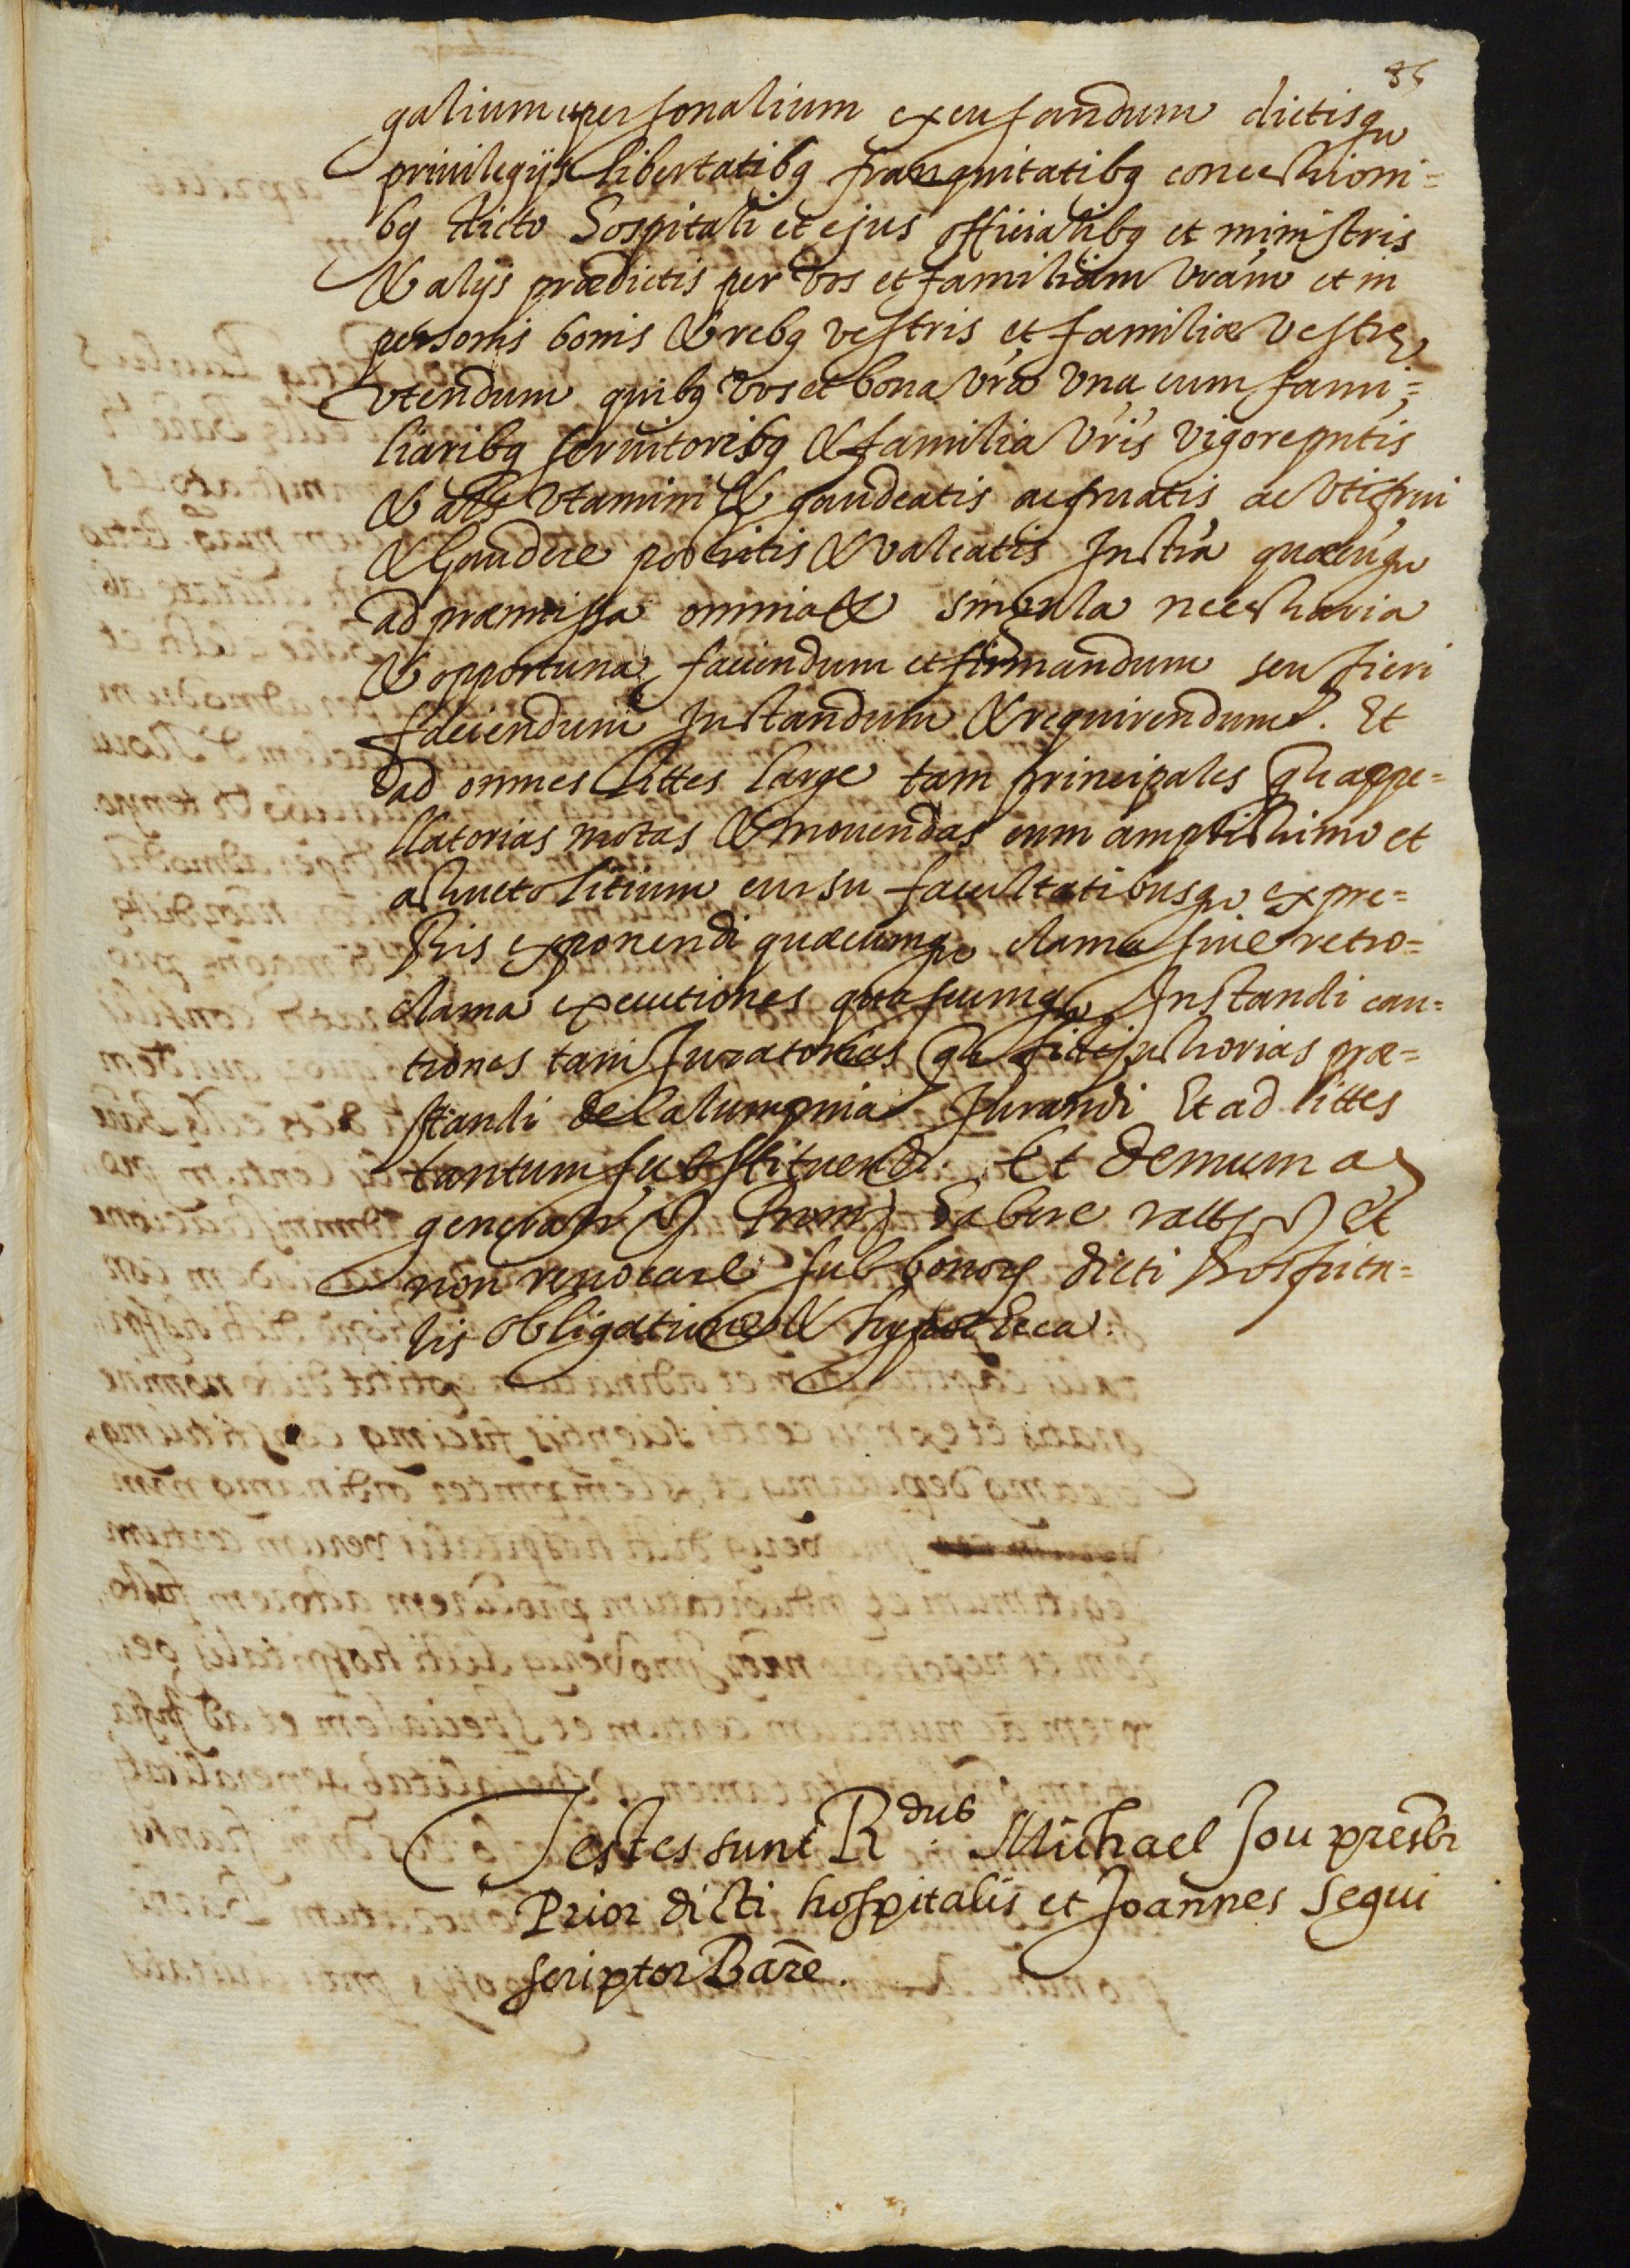 86
galium et personalium excusandum dictisq3
priuilegijs libertatib9 franquitatib9 concessioni=
b9 dicto Hospitali et ejus officialib9 et ministris
& alijs prædictis per vos et familiam vram et in
personis bonis & reb9 vestris et familiæ vestre
vtendum quib9 vos et bona vra vna cum fami=
liarib9 seruitorib9 & familia vris vigore pntis
& utamini & gaudeatis ac fruatis ac vti frui
& Gaudere possitis & valeatis Instra quæcuq3
ad præmissa omnia & singula necessaria
& opportuna faciendum et firmandum seu fieri
faciendum Instandum & requirendum. Et
ad omnes littes large tam principales q̃ appe=
llatorias motas & mouendas cum amplissimo et
assueto litium cursu facultatibusq3 expre=
ssis exponendi quæcumq3 clama siue retro=
clama executiones quascumq3 Instandi cau=
tiones tam Juratorias q̃ fidejussorias præ=
standi de Calumpnia Jurandi Et ad littes
tantum substituendi. Et demum
general Promi habere ratt et
non reuocare sub bonor dicti Hospita=
lis obligatione & hypotheca.
Testes sunt Rdus Michael Jou presbr
Prior dicti hospitalis et Joannes Segui
scriptor Bare.